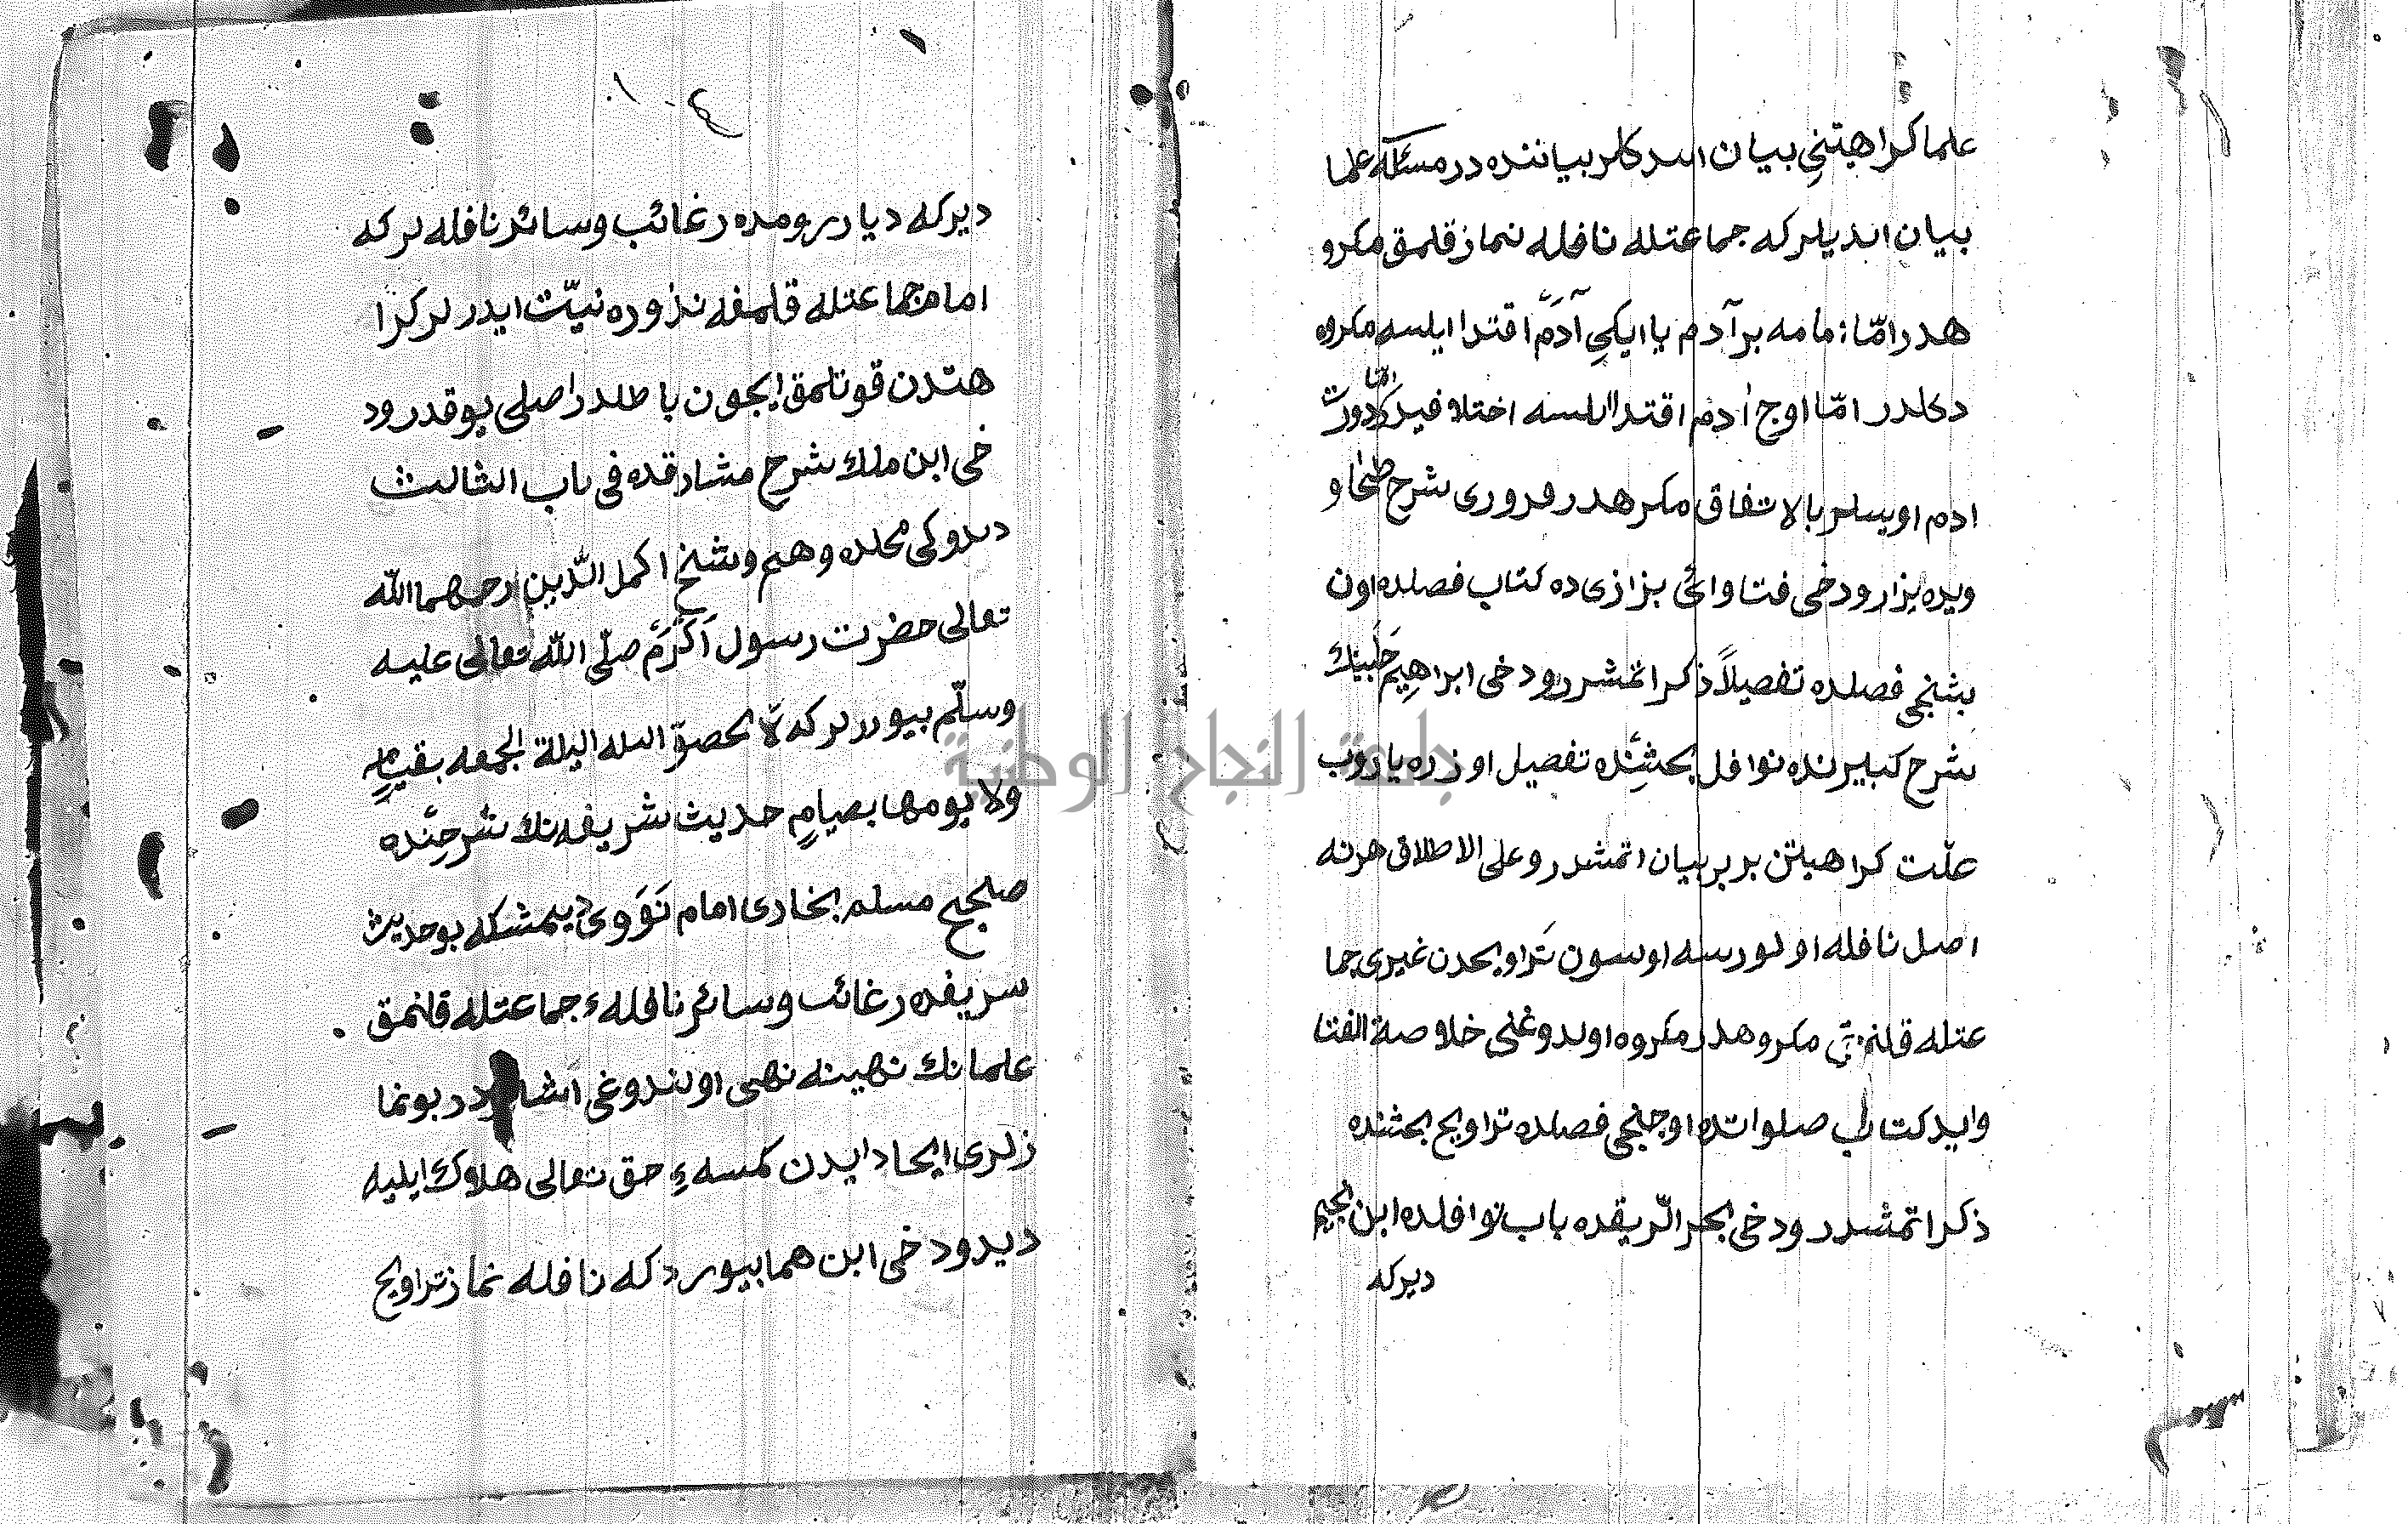 علما كراهتنى بيان اىدركلر بياننده در مسئله علما
بيان ايديلر كه جماعتله نافله نماز قلمق مكرو
هدر امّا امامه بر آدم يا ايكى آدَم اقتدا ايلسه مكروه
دكلدر امّا اوچ آدم اقتدا ايلسه اختلافيدر امّا دورت
ادم اويسلر بالاتفاق مكرهدر قدورى شرح طحاو
ويده يزار ودخى فتاوائ بزازى ده كتاب فصلده اون
بشنجى فصلده تفصيلاً ذكر اتمشدر ودخى ابراهيم حلبينك
شرح كبيرنده نوافل بحثنده تفصيل اوزره يازوب
علّت كراهيتن بربر بيان اتمشدر وعلى الاطلاق هرنه
اصل نافله اولورسه اولسون تَراويحدن غيرى جما
عتله قلنمق مكروهدر مكروه اولدوغنى خلاصة الفتا
وايد كتاب صلواتده اوچنجى فصلده تراويح بحثنده
ذكر اتمشدر ودخى بحر الرّيقده باب نوافلده ابن نجيم
ديركه
ديركه ديار رومده رغائب وسائر نافله لركه
امام جماعتله قلمغه نذوره نيّت ايدرلر كرا
هتدن قوتلمق ايچون باطلدر اصلى يوقدر ود
خى ابن ملك شرح مشارقده فى باب الثالث
ديدوكى محلده وهم وشيخ اكمل الدّين رحمهما اللّه
تعالى حضرت رسول اَكرَم صلّى اللّه تعالى عليه
وسلّم بيوررلر كه لا تحصوّا ليله اليلة الجمعه بقيامٍ
ولا يومها بصيامٍ حديث شريفه نك شرحنده
صحيح مسلم بخارى امام نَوَوى ديمشكه بو حديث
شريفده رغائب وسائر نافلهء جماعتله قلنمق
علمانك نهينه نهى اولندوغى در بونما
زلرى ايجاد ايدن كمسهءِ حق تعالى هلاوك ايليه
ديدو دخى ابن هما بيوردكه نافله نماز تراويح
جامعة النجاح الوطنية